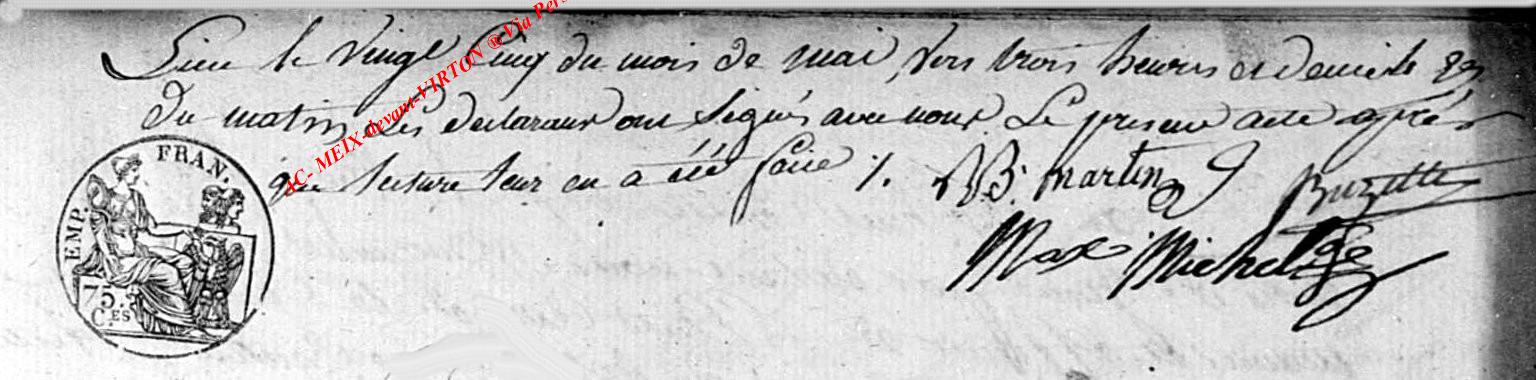 Lieu le vingt Cinq du mois de mai vers trois heures et demie
du matin Les declarans ont Signés avec nous Le present acte après
que lecture leur en a été faite /. B. martin J Buzette
Max Michel
EMP. FRAN.
75.
C.ES
AC- MEIX-devant-VIRTON ®Via Pers